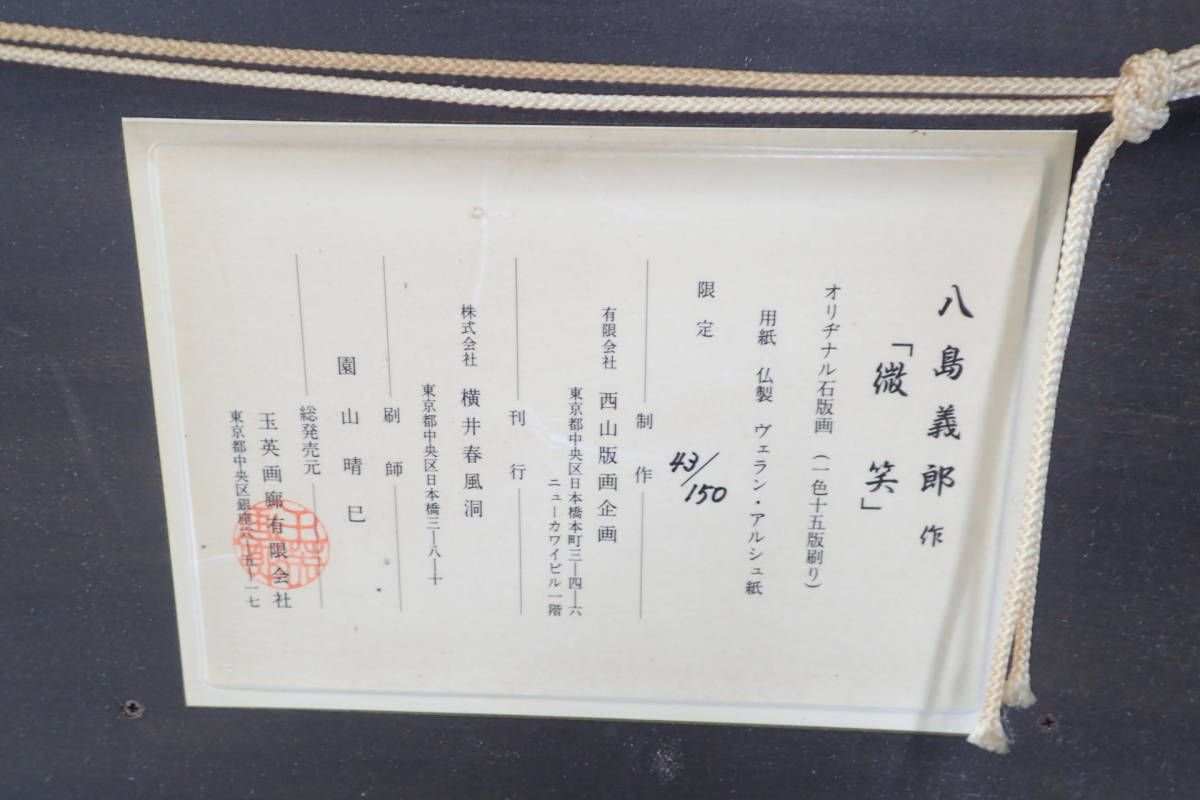 八島義郎 作
「微笑」
オリヂナル石版画 (一色十五版刷り)
用紙 仏製 ヴェラン・アルシュ紙
限定 43/150
制作
有限会社 西山版画企画
東京都中央区日本橋本町三―四―六
ニューカワイビル一階
刊行
株式会社 横井春風洞
東京都中央区日本橋三―八―十
刷師
園山晴巳
総発売元
玉英画廊有限会社
東京都中央区銀座六―五―一七